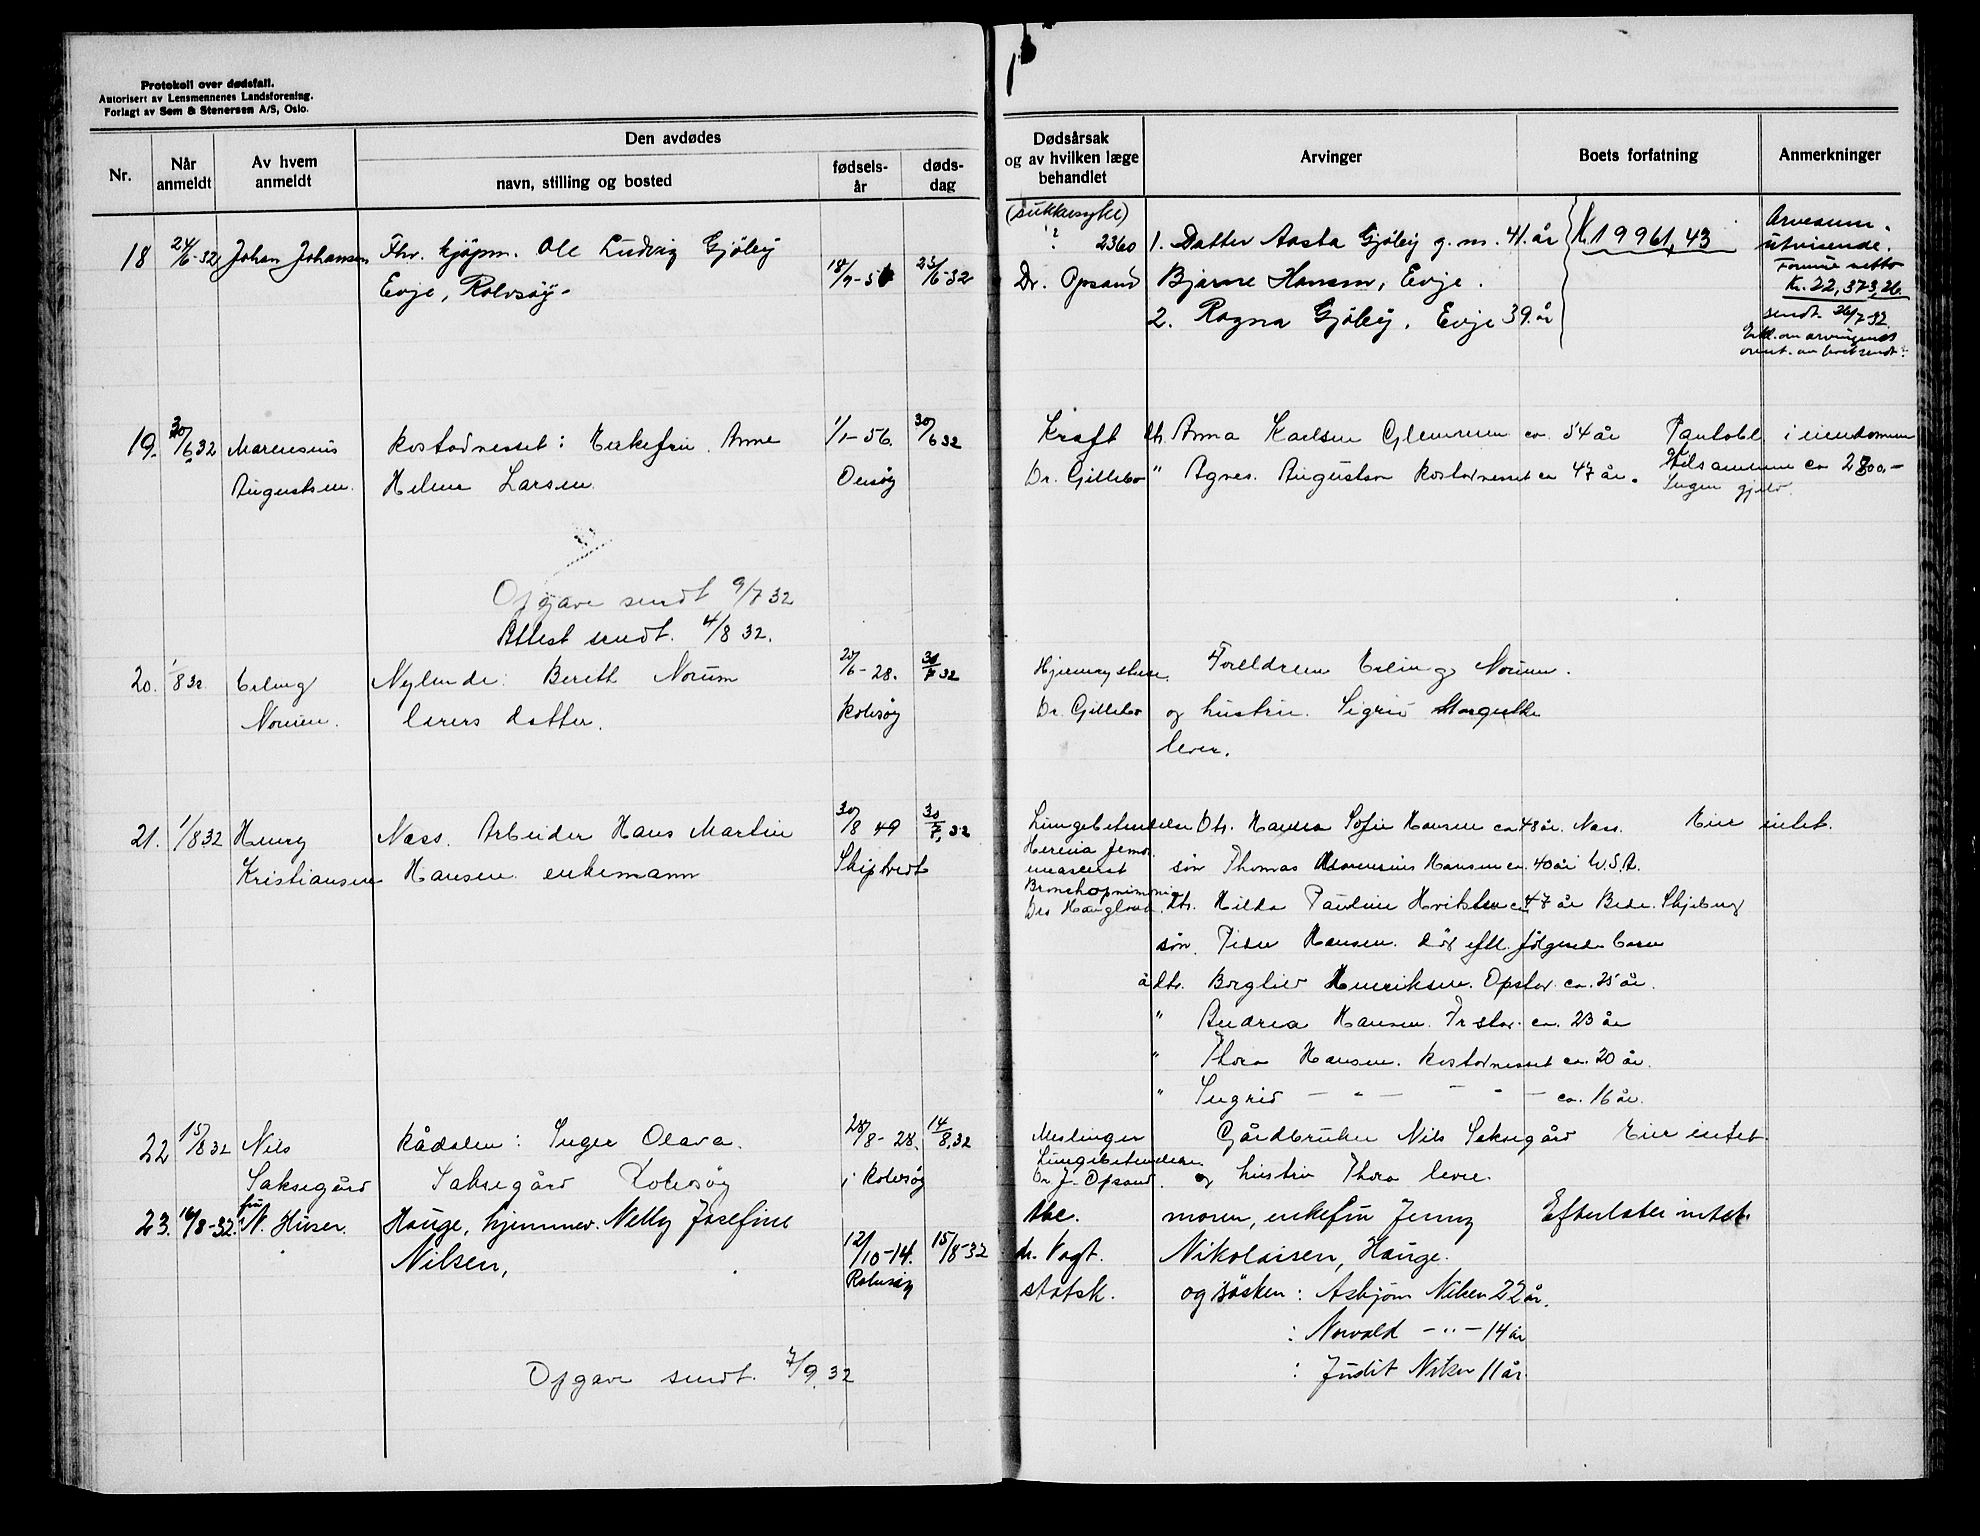 Protokoll over dødsfall.
Autorisert av Lensmennenes Landsforening.
Forlagt av Sem & Stenersen A/S, Oslo.
Nr.
Når anmeldt
Av hvem anmeldt
Den avdødes
navn, stilling og bosted
fødsels-år
døds-dag
Dødsårsak og av hvilken læge behandlet
Arvinger
Boets forfatning
Anmerkninger
18 24/6-32 Johan Johansen Fhv. kjøpm. Ole Ludvig Gjøby
Evje, Rolvsøy 18/9-51 23/6-32
(sukkersyke)
? 2360
Dr. Opsand
1. Datter Aasta Gjøby g.m. 41. år
Bjarne Hansen, Evje.
2. Ragna Gjøby. Evje 39. år
Kr. 19961,43
Arvesum.
utvisende.
Formue netto
Kr. 22,373,26
sendt 26/7-32
19. 30/6 32 Marensius
Augustsen.
Rostadnesset: Enkefru. Anne
Helene Larsen.
1/1-56.
Onsøy
30/6 32
Kraft
Dr. Gillebo
dtr. Anna Karlsen Glemmen ca. 54 år
" Agnes. Augustsen Rostadnesset ca 47 år.
Pantobl. i eiendommen
tilsammen ca 2800.-
Ingen gjeld.
Opgave sendt 9/7 32
Attest sendt. 4/8 32.
20. 1/8 32 Erling
Norum.
Nylende: Berith Norum
lærers datter.
20/6-28.
Rolvsøy
30/7 32
Hjernerystelse.
Dr. Gillebo
Foreldrene Erling Norum.
og hustru. Sigrid Margrethe
lever.
21. 1/8 32 Henry
Kristiansen
Næss. Arbeider Hans Martin
Hansen. enkemann
30/8 49
Skiptvedt
30/7. 32
Lungebetendelse
Bronchopnimonia
Dtr. Sofie Hansen ca 48 år. Næss.
søn Thomas Marensius Hansen ca. 40 år U.S.A.
dtr. Hilda Pauline ca 47 år Bede. Skjeberg
søn. Peder Hansen. død eftl. følgende barn
a dtr. Borglid Henriksen. Opstad. ca. 25 år.
" Andrea Hansen. ca. 23 år
" Thora Hansen. Rostadnesset ca. 20 år.
" Ingrid — " — " — ca. 16 år.
Eier intet.
22 15/8 32 Nils
Saksegård
Rådalen: Inger Olava.
Saksegård Rolvsøy
28/8-28.
i Rolvsøy
14/8. 32
Meslinger
Lungebetendelse.
Dr. J. Opsand.
Gårdbruker Nils Saksegård
og hustru Thora lever.
Eier intet
23. 16/8-32. fru N. Huser.
Hauge, hjemmev. Nelly Josefine
Nilsen,
12/10-14.
Rolvsøy
15/8-32
tbc.
dr. Vogt.
statsk.
moren, enkefru Jenny
Nikolaisen, Hauge.
og søsken: Asbjørn Nilsen 22 år.
: Norvald —"— 14 år
: Judit Nilsen 11 år.
Efterlater intet.
Opgave sendt. 7/9. 32